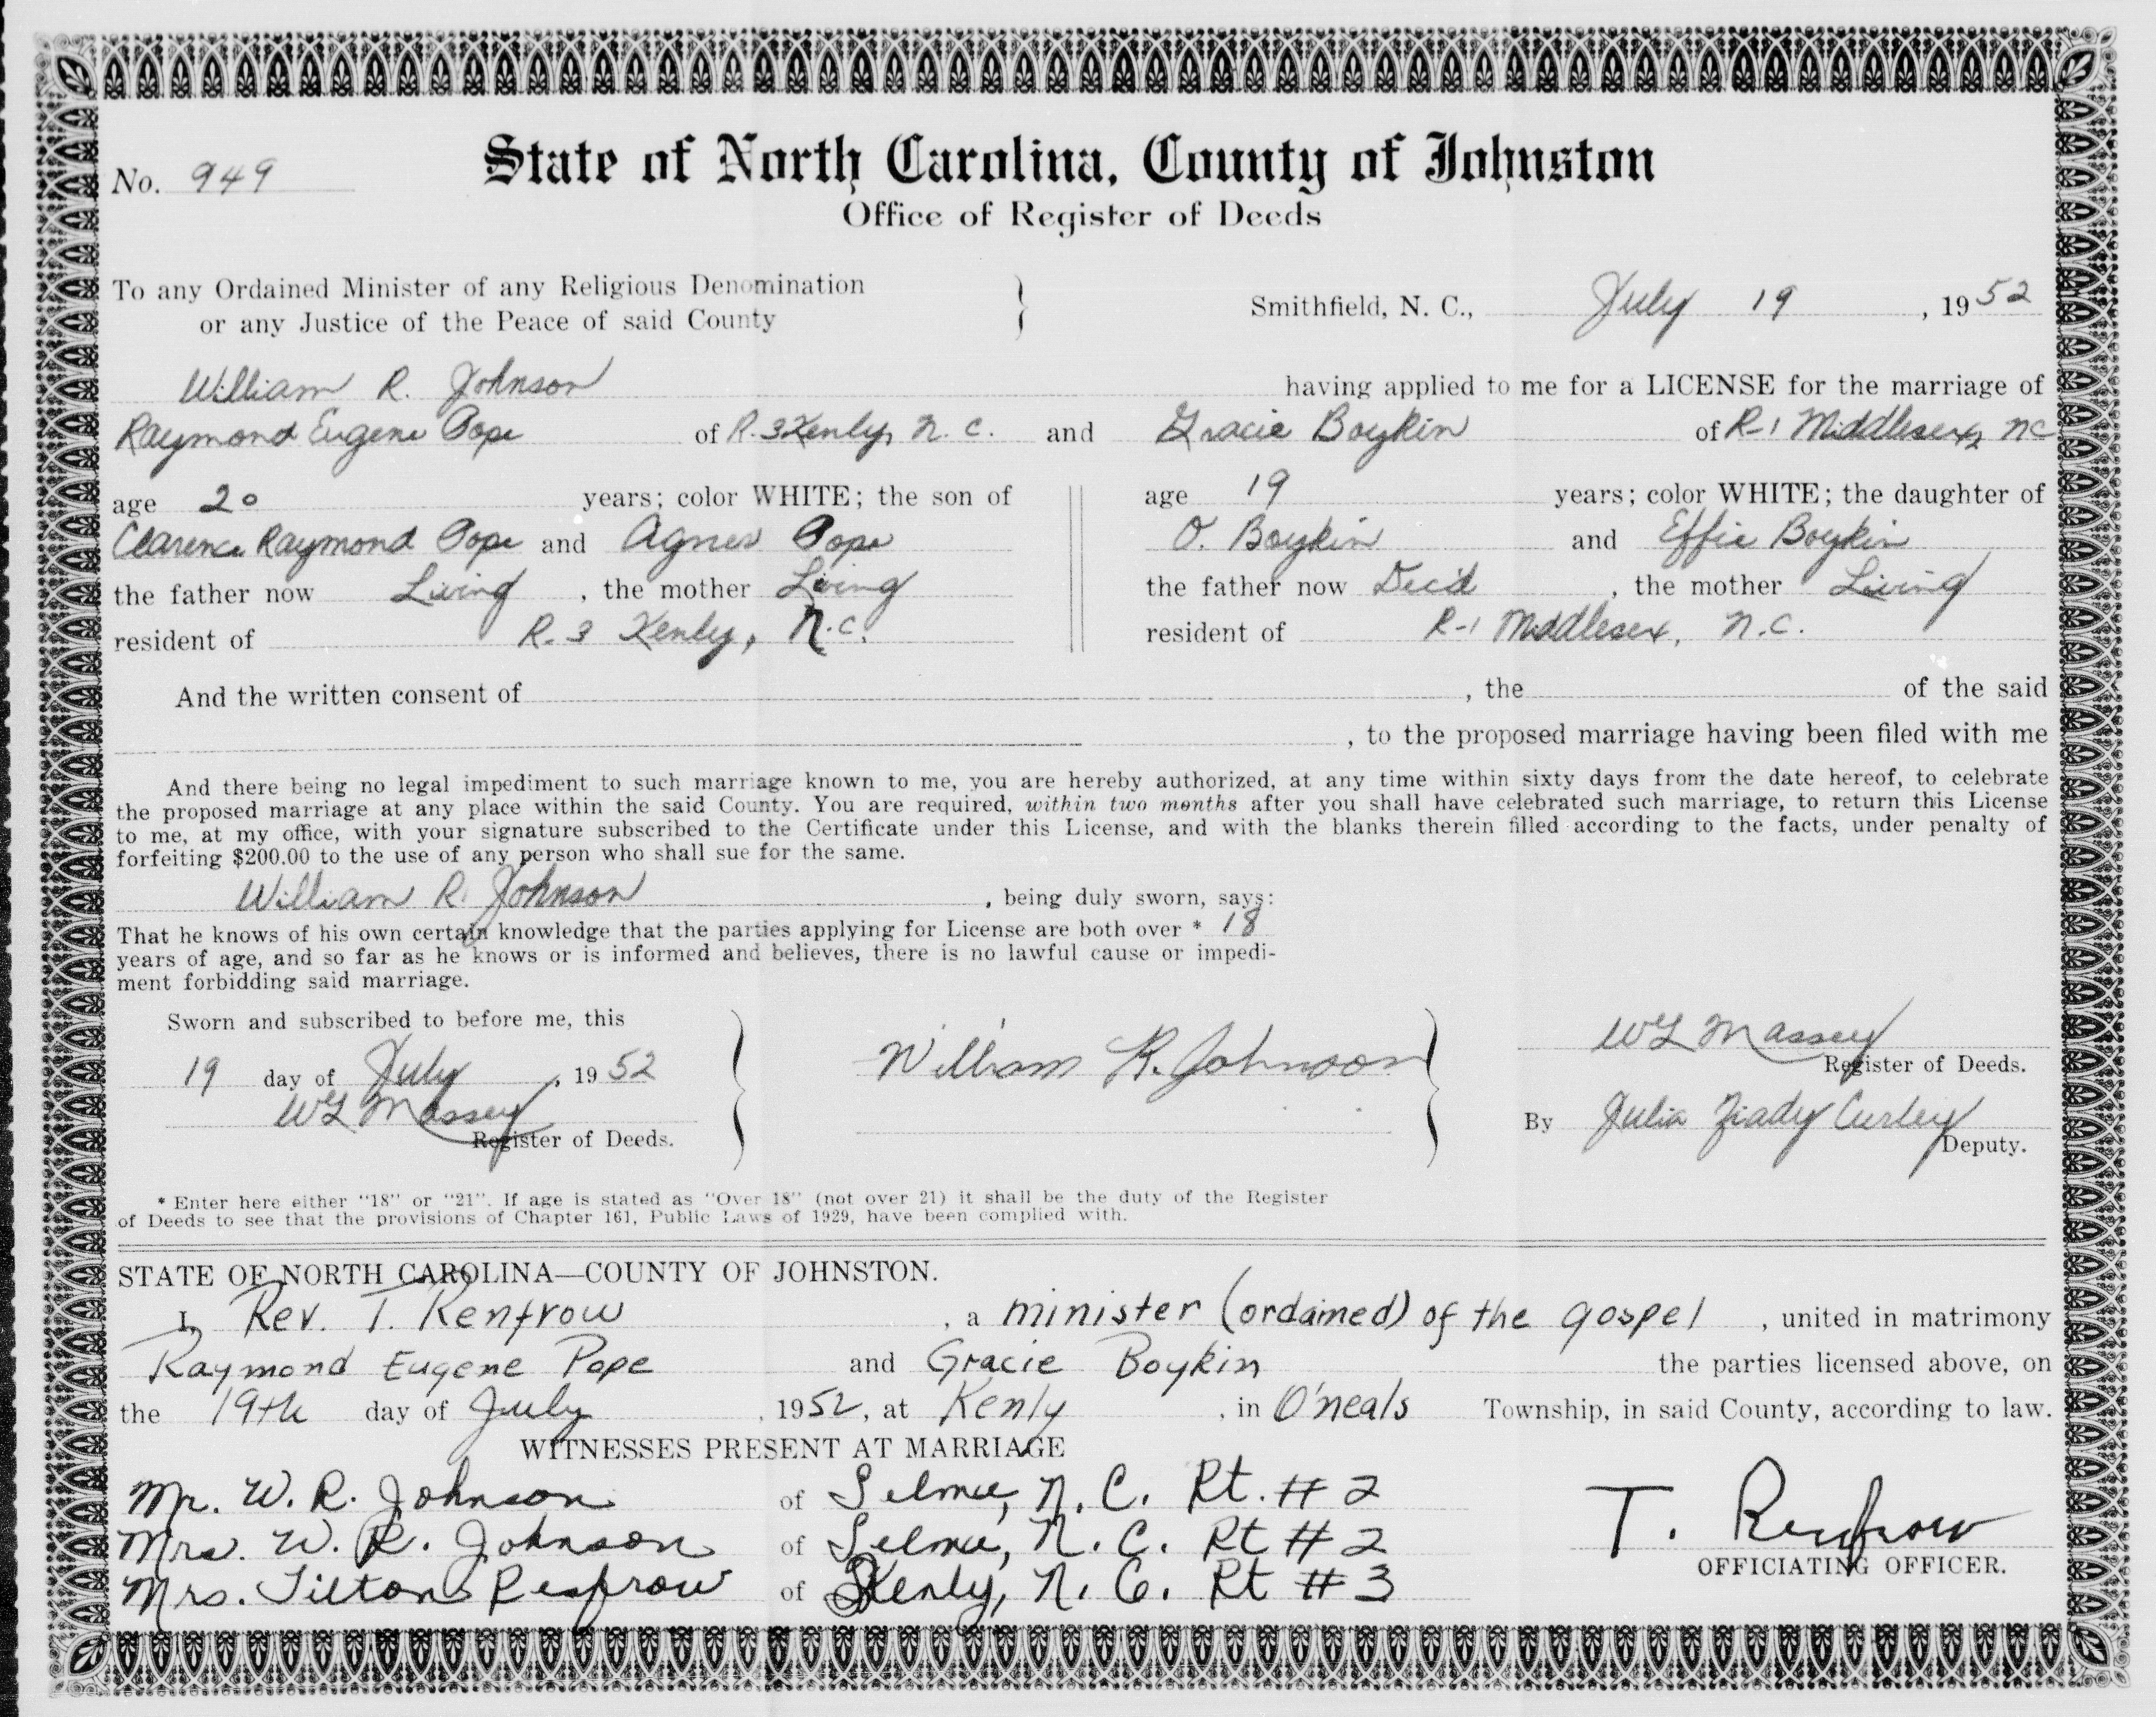 No. 949
State of North Carolina, County of Johnston
Office of Register of Deeds
To any Ordained Minister of any Religious Denomination
or any Justice of the Peace of said County
Smithfield, N. C., July 19, 1952
William R. Johnson having applied to me for a LICENSE for the marriage of
Raymond Eugene Pope of R. 3 Kenly, N. C. and Gracie Boykin of R-1 Middlesex, NC
age 20 years; color WHITE; the son of
Clarence Raymond Pope and Agnes Pope
the father now Living, the mother Living
resident of R. 3 Kenly, N.C.
age 19 years; color WHITE; the daughter of
O. Boykin and Effie Boykin
the father now Dec'd, the mother Living
resident of R-1 Middlesex, N.C.
And the written consent of , the of the said
, to the proposed marriage having been filed with me
And there being no legal impediment to such marriage known to me, you are hereby authorized, at any time within sixty days from the date hereof, to celebrate
the proposed marriage at any place within the said County. You are required, within two months after you shall have celebrated such marriage, to return this License
to me, at my office, with your signature subscribed to the Certificate under this License, and with the blanks therein filled according to the facts, under penalty of
forfeiting $200.00 to the use of any person who shall sue for the same.
William R. Johnson, being duly sworn, says:
That he knows of his own certain knowledge that the parties applying for License are both over * 18
years of age, and so far as he knows or is informed and believes, there is no lawful cause or impedi-
ment forbidding said marriage.
Sworn and subscribed to before me, this
19 day of July, 1952
WL Massey
Register of Deeds.
William R. Johnson
WL Massey
Register of Deeds.
By Julia Curley
Deputy.
* Enter here either "18" or "21". If age is stated as "Over 18" (not over 21) it shall be the duty of the Register
of Deeds to see that the provisions of Chapter 161, Public Laws of 1929, have been complied with.
STATE OF NORTH CAROLINA—COUNTY OF JOHNSTON.
I, Rev. T. Renfrow, a minister (ordained) of the gospel, united in matrimony
Raymond Eugene Pope and Gracie Boykin the parties licensed above, on
the 19th day of July, 1952, at Kenly, in O'neals Township, in said County, according to law.
WITNESSES PRESENT AT MARRIAGE
Mr. W. R. Johnson of Selma, N. C. Rt. # 2
Mrs. W. R. Johnson of Selma, N. C. Rt # 2
Mrs. Tilton Renfrow of Kenly, N. C. Rt # 3
T. Renfrow
OFFICIATING OFFICER.